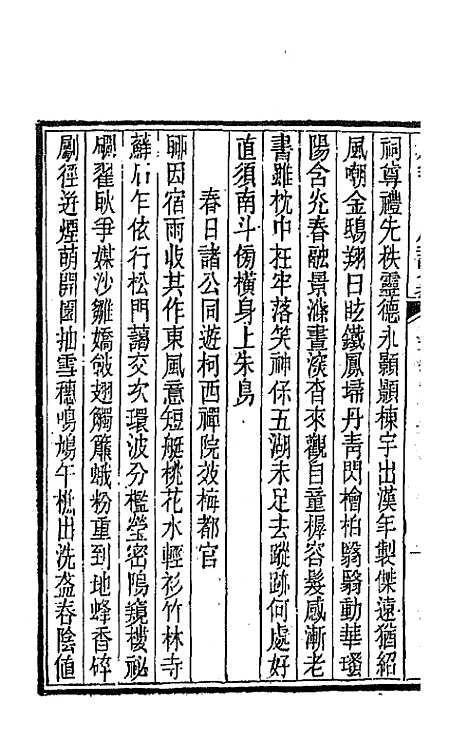 祠尊禮先秩靈德永顯顯棟宇出漢年製傑遠猶紹
風嘲金鴟翔日眩鐵鳳埽丹青閃檜柏翳翳動華瑵
陽含兆春融景滌晝淡杳來觀自童樨容髮感漸老
書雖枕中在牢落笑神係五湖未足去蹤跡何處好
直須南斗傍橫身上朱鳥
春日諸公同遊柯西禪院效梅都官
聊因宿雨收其作東風意短艇桃花水輕衫竹林寺
蘚石乍依行松門藹交次環波分檻瑩密隖窺樓祕
翟耿爭媒沙雛嬌敛翅觸簾蛾粉重到地蜂香碎
劚徑近煙萌開園抽雪穗鳴鳩午樵出洗盋春陰值